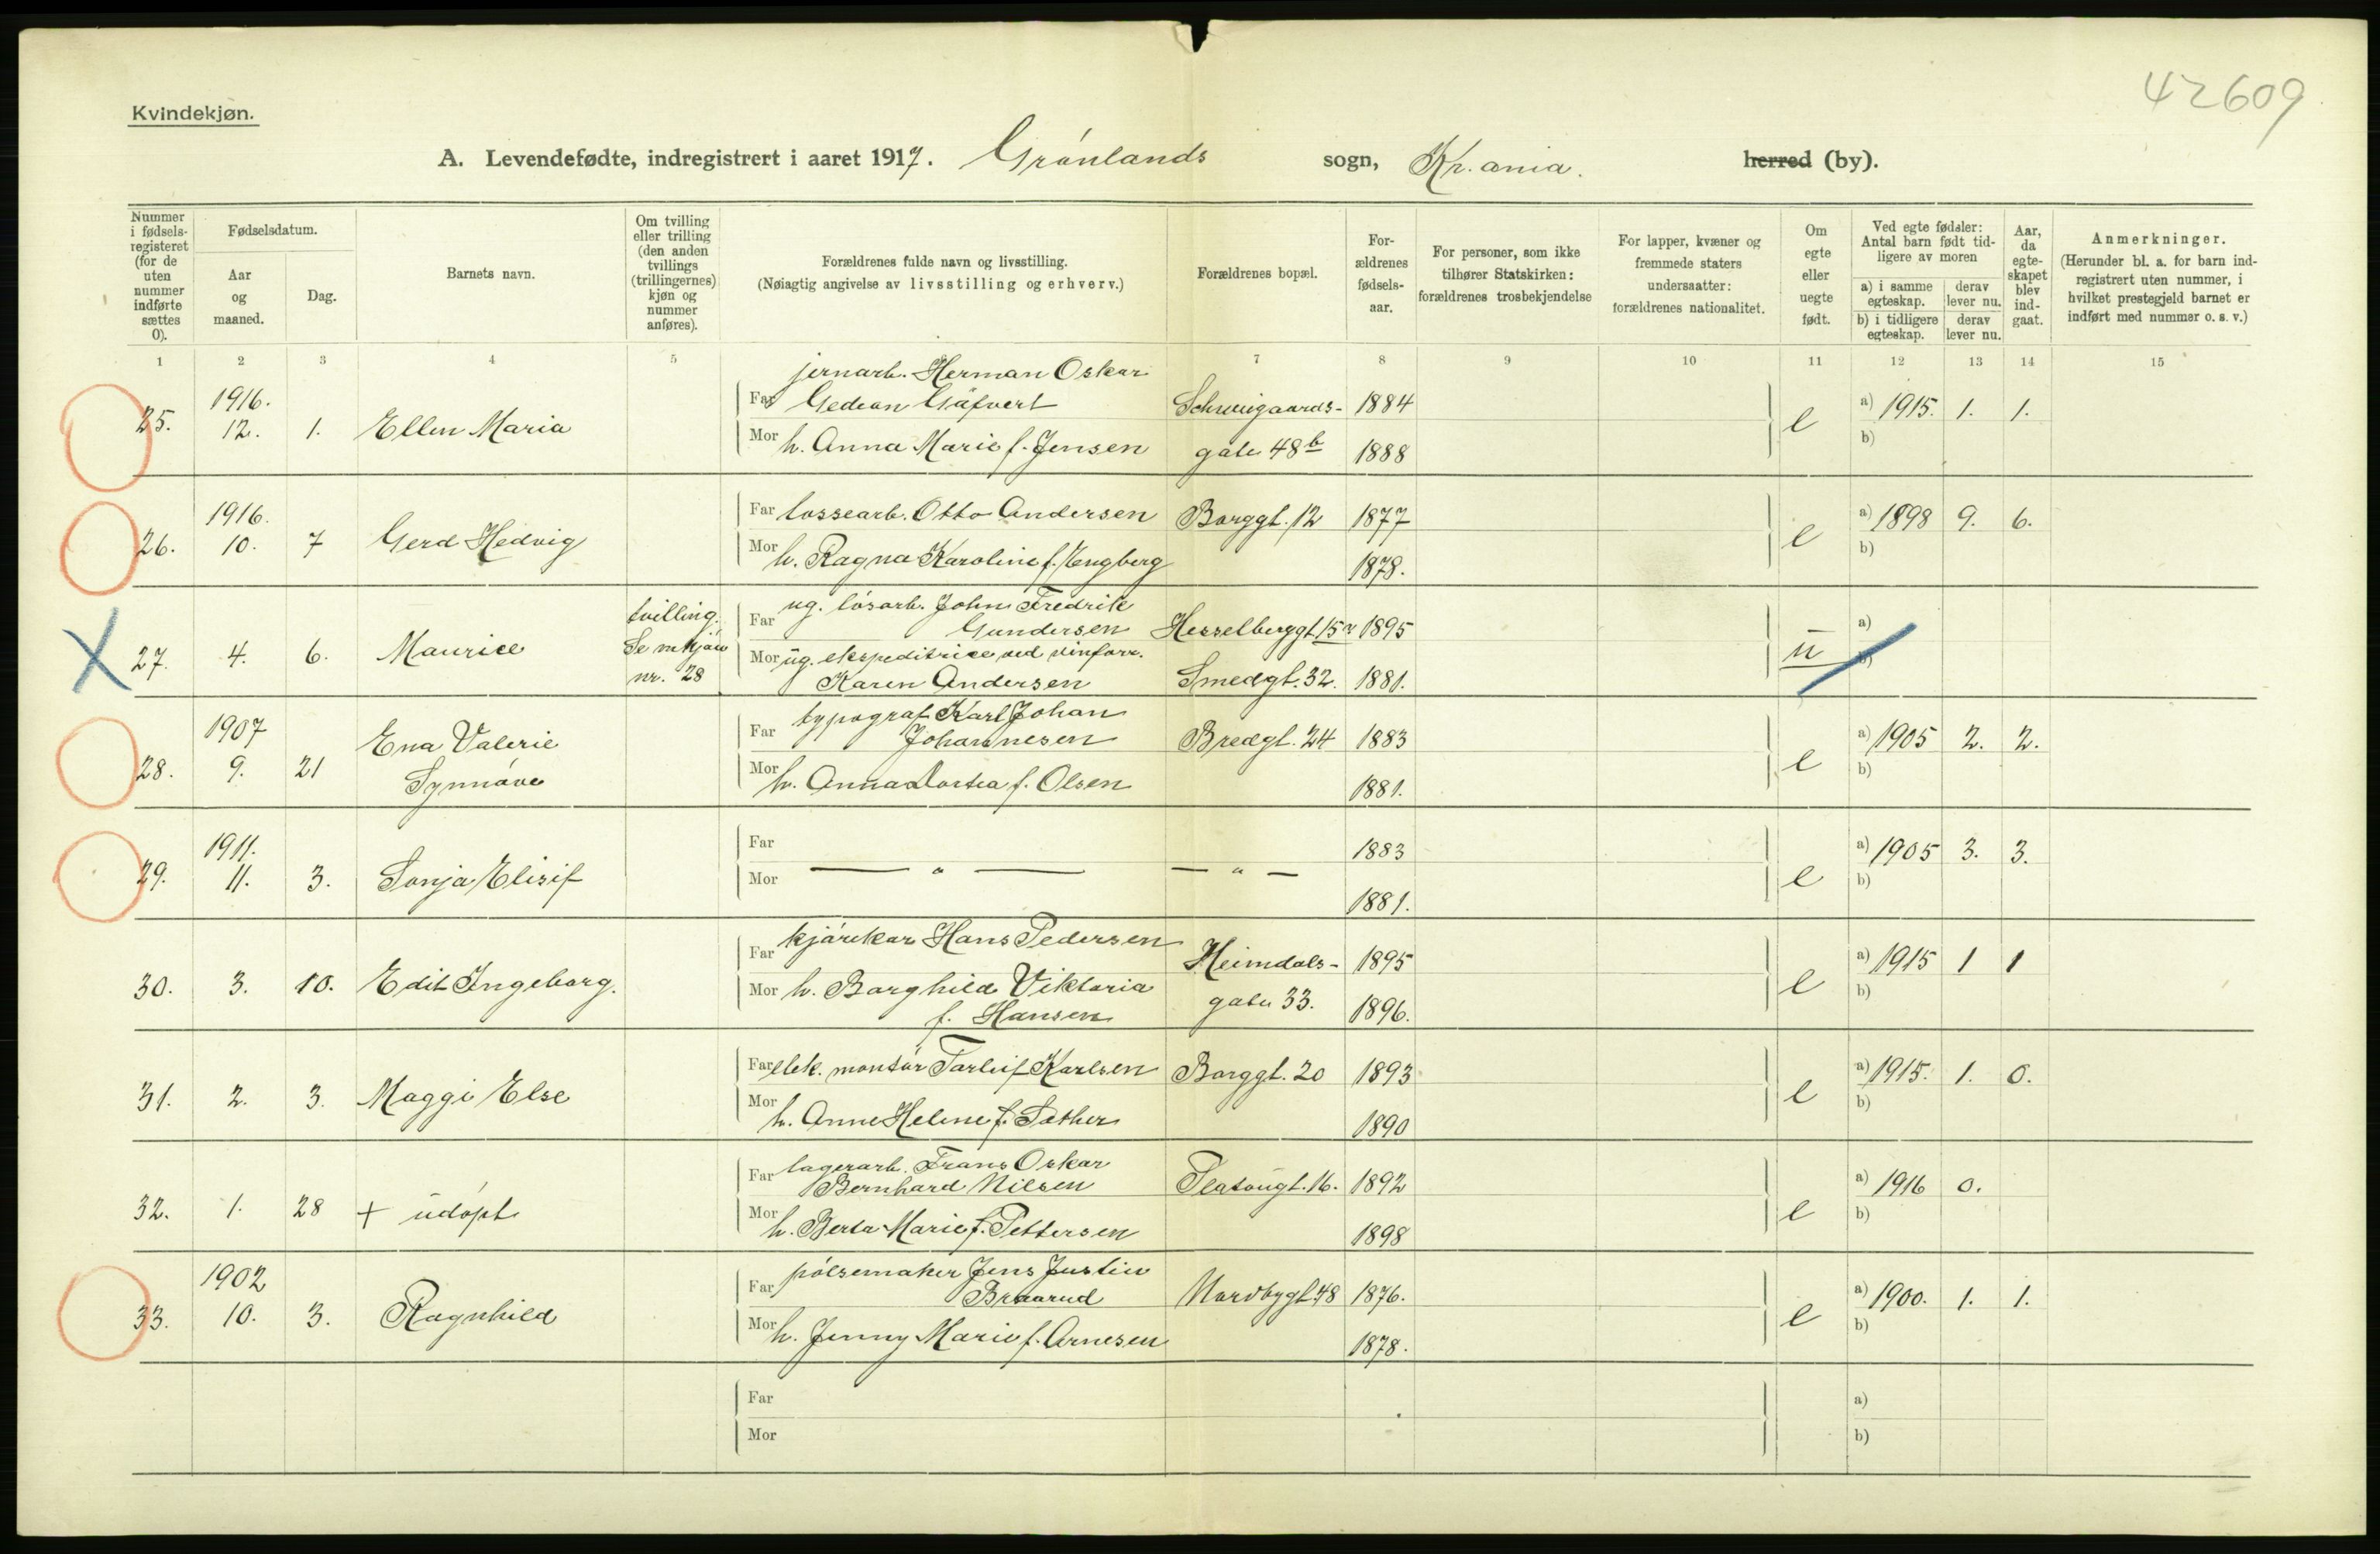 42609
Kvindekjøn.
A. Levendefødte, indregistrert i aaret 1917. Grønlands sogn, Kr.ania. herred (by).
Nummer i fødsels-registeret (for de uten nummer indførte sættes 0).
Fødselsdatum.
Aar og maaned.
Dag.
Barnets navn.
Om tvilling eller trilling (den anden tvillings (trillingernes) kjøn og nummer anføres).
Forældrenes fulde navn og livsstilling.
(Nøiagtig angivelse av livsstilling og erhverv.)
Forældrenes bopæl.
For-ældrenes fødsels-aar.
For personer, som ikke tilhører Statskirken: forældrenes trosbekjendelse
For lapper, kvæner og fremmede staters undersaatter: forældrenes nationalitet.
Om egte eller uegte født.
Ved egte fødsler: Antal barn født tid-ligere av moren
a) i samme egteskap. derav lever nu.
b) i tidligere egteskap. derav lever nu.
Aar, da egte-skapet blev ind-gaat.
Anmerkninger.
(Herunder bl. a. for barn ind-registrert uten nummer, i hvilket prestegjeld barnet er indført med nummer o. s. v.)
1 2 3 4 5 7 8 9 10 11 12 13 14 15
jernarb. Herman Oskar
25. 1916. 12. 1. Ellen Maria Far Gedeon Gäfvert Schweigaards- 1884 e a) 1915. 1. 1.
Mor h. Anna Marie f. Jensen gate 48b 1888 b)
26. 1916. 10. 7 Gerd Hedvig Far lossearb. Otto Andersen Borggt. 12 1877 e a) 1898 9. 6.
Mor h. Ragna Karoline f. Engberg 1878. b)
27. 4. 6. Maurice tvilling. Se mkjøn nr. 28 Far ug. løsarb. John Fredrik
Gundersen Hesselberggt. 15 1895 u a)
Mor ug. ekspeditrice ved vinforr.
Karen Andersen Smedgt. 32. 1881. b)
28. 1907 9. 21 Ena Valerie Synnøve Far typograf Karl Johan
Johannesen Bredgt. 24 1883 e a) 1905 2. 2.
Mor h. Anna Dortea f. Olsen 1881. b)
29. 1911. 11. 3. Sonja Elisif Far 1883 e a) 1905 3. 3.
Mor — " — — " — 1881. b)
30. 3. 10. Edit Ingeborg. Far kjørekar Hans Pedersen Heimdals- 1895 e a) 1915 1 1
Mor h. Borghild Viktoria gate 33. 1896. b)
f. Hansen
31. 2. 3. Maggi Else Far elek. montør Torleif Karlsen Borggt. 20 1893 e a) 1915. 1. 0.
Mor h. Anne Helene f. Sæther 1890 b)
32. 1. 28 + udøpt Far lagerarb. Frans Oskar
Bernhard Nilsen Platougt. 16. 1892 e a) 1916 0.
Mor h. Berta Marie f. Pettersen 1898 b)
33. 1902 10. 3. Ragnhild Far pølsemaker Jens Justin
Braarud Nordbygt. 48 1876. e a) 1900. 1. 1.
Mor h. Jenny Marie f. Arnesen 1878. b)
Far a)
Mor b)